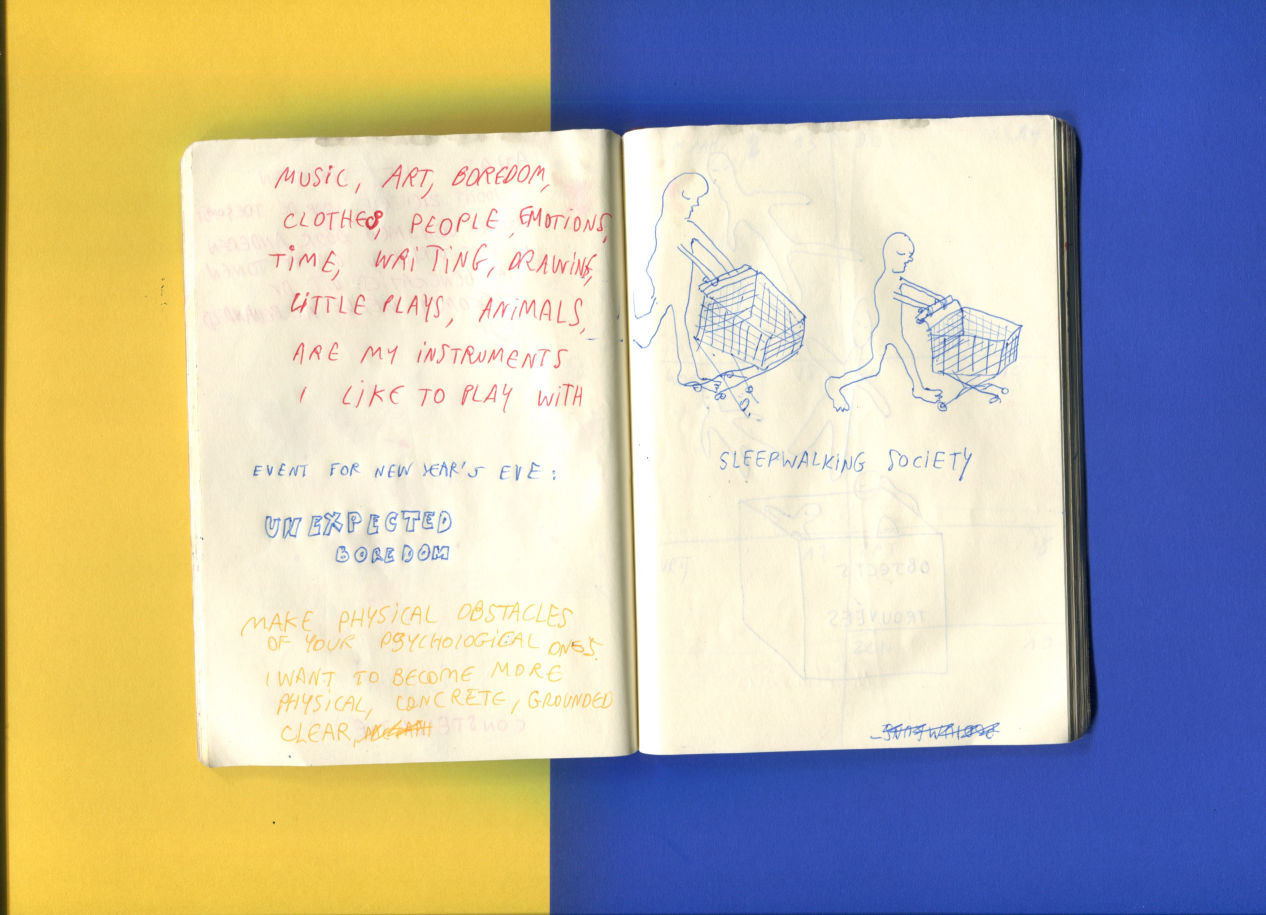 MUSIC, ART, BOREDOM,
CLOTHES, PEOPLE, EMOTIONS,
TIME, WRITING, DRAWING,
LITTLE PLAYS, ANIMALS,
ARE MY INSTRUMENTS
I LIKE TO PLAY WITH
EVENT FOR NEW YEAR'S EVE:
UNEXPECTED
BOREDOM
MAKE PHYSICAL OBSTACLES
OF YOUR PSYCHOLOGICAL ONES.
I WANT TO BECOME MORE
PHYSICAL, CONCRETE, GROUNDED
CLEAR,
SLEEPWALKING SOCIETY
OBJECTS
TROUVÉES